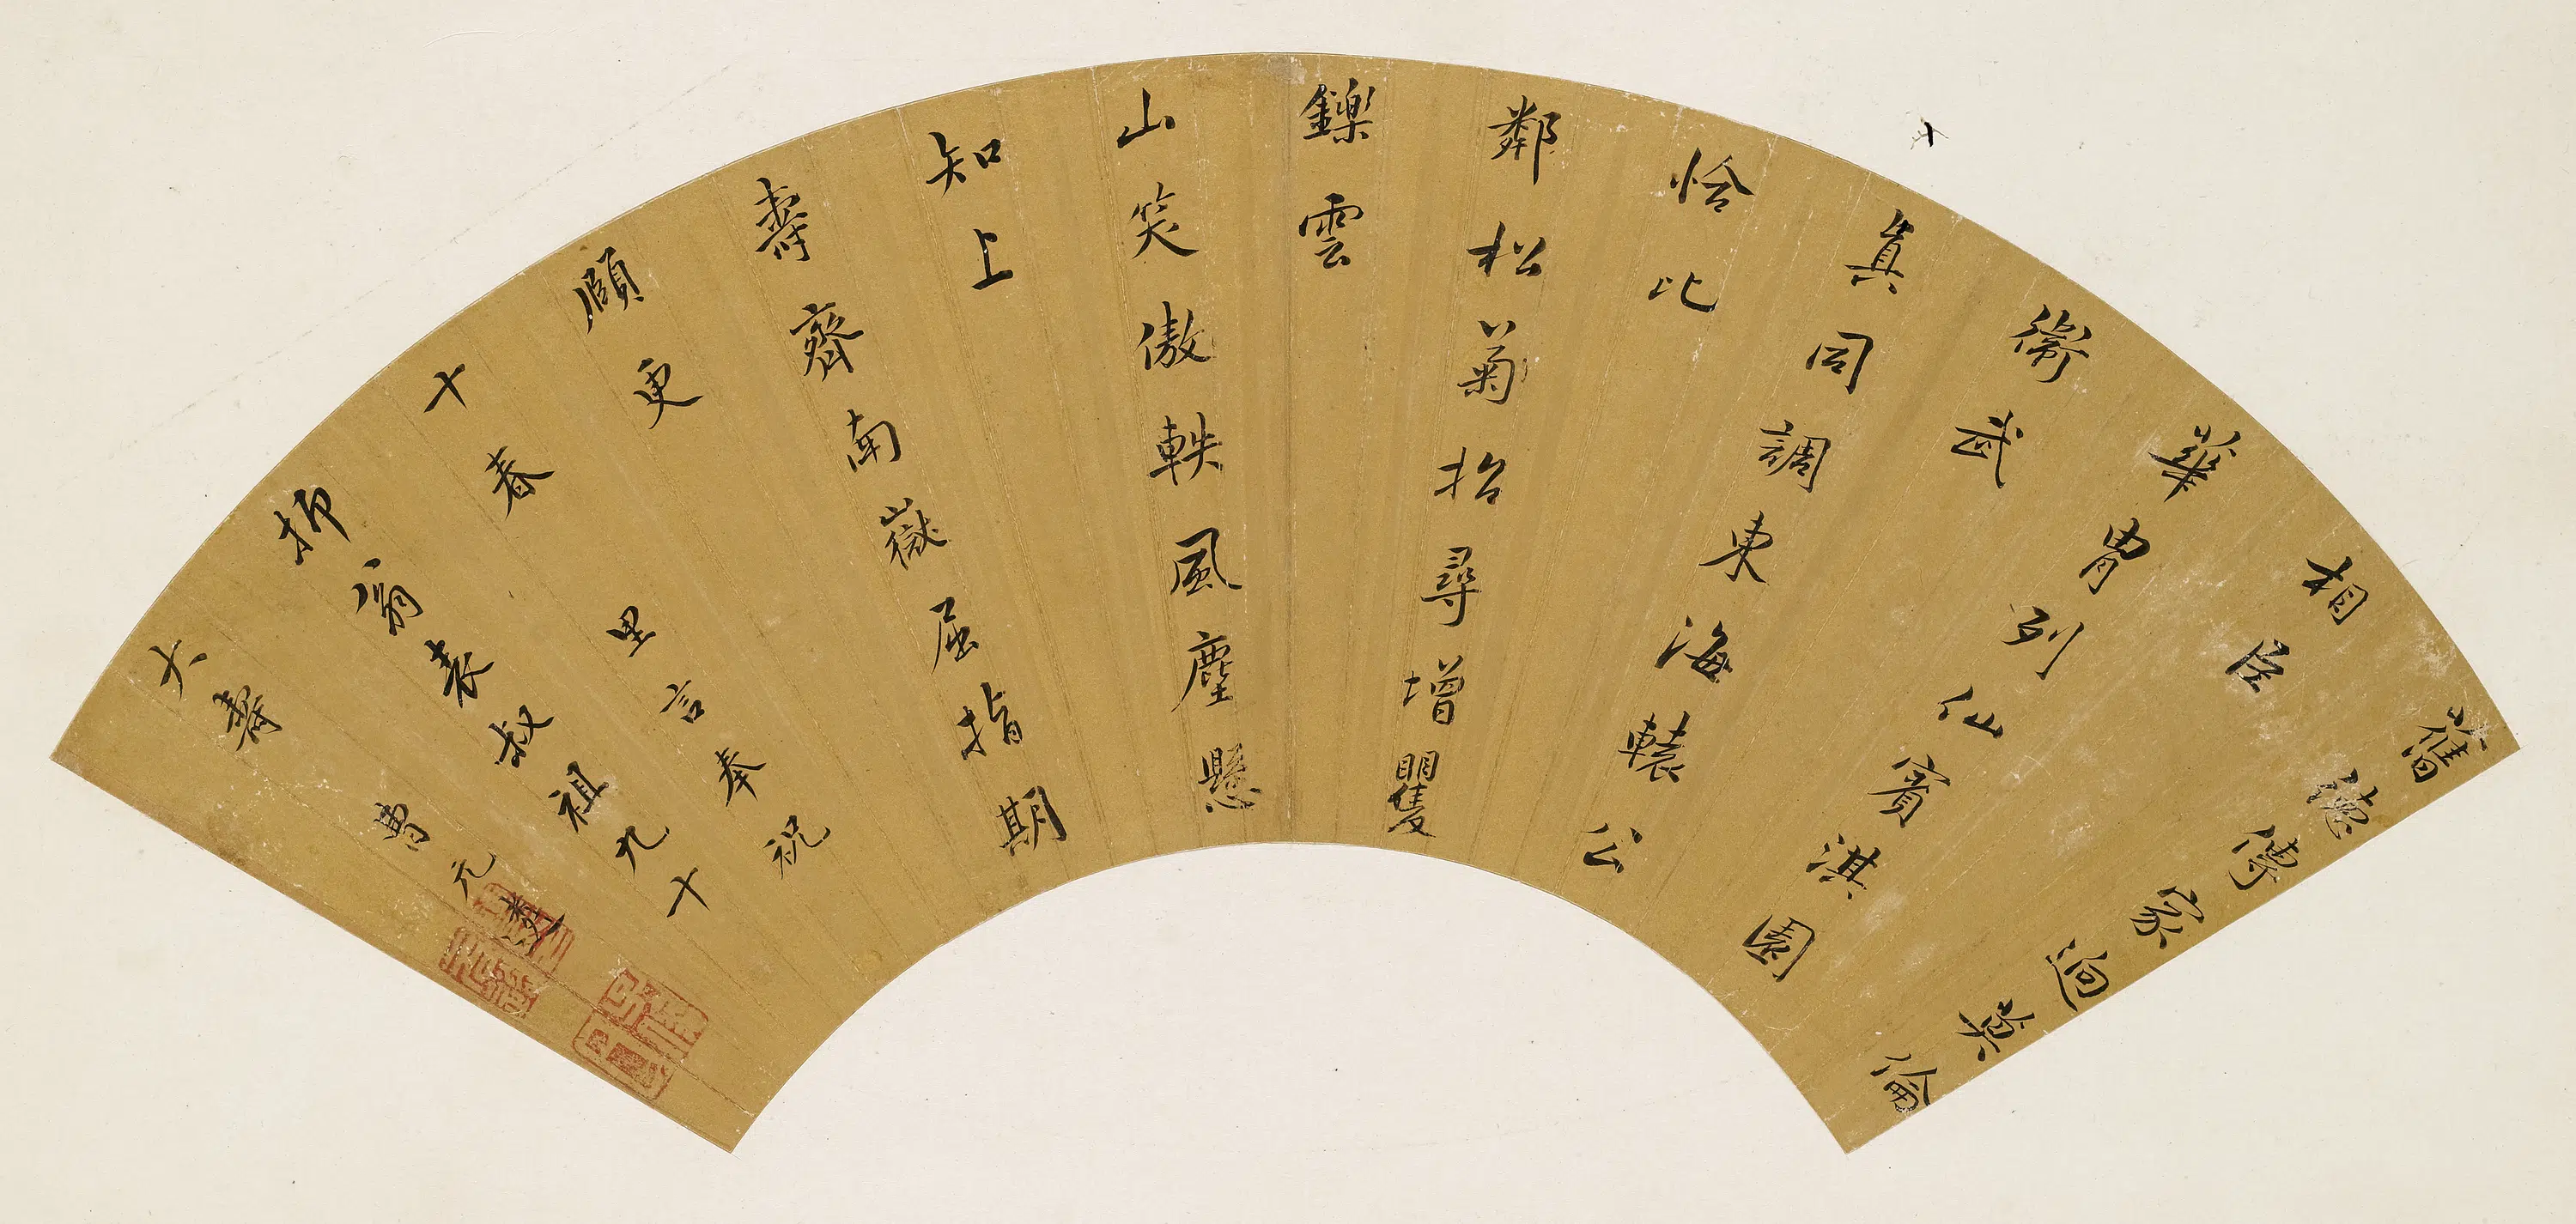 舊德傳家迥莫倫
相臣
華胄列仙賓淇園
衞武
真同調東海轅公
恰比
鄰松菊招尋增矍
鑠雲
山笑傲軼風塵懸
知上
壽齊南嶽屈指期
頤更
十春
里言奉祝
翁表叔祖九十
大壽
元